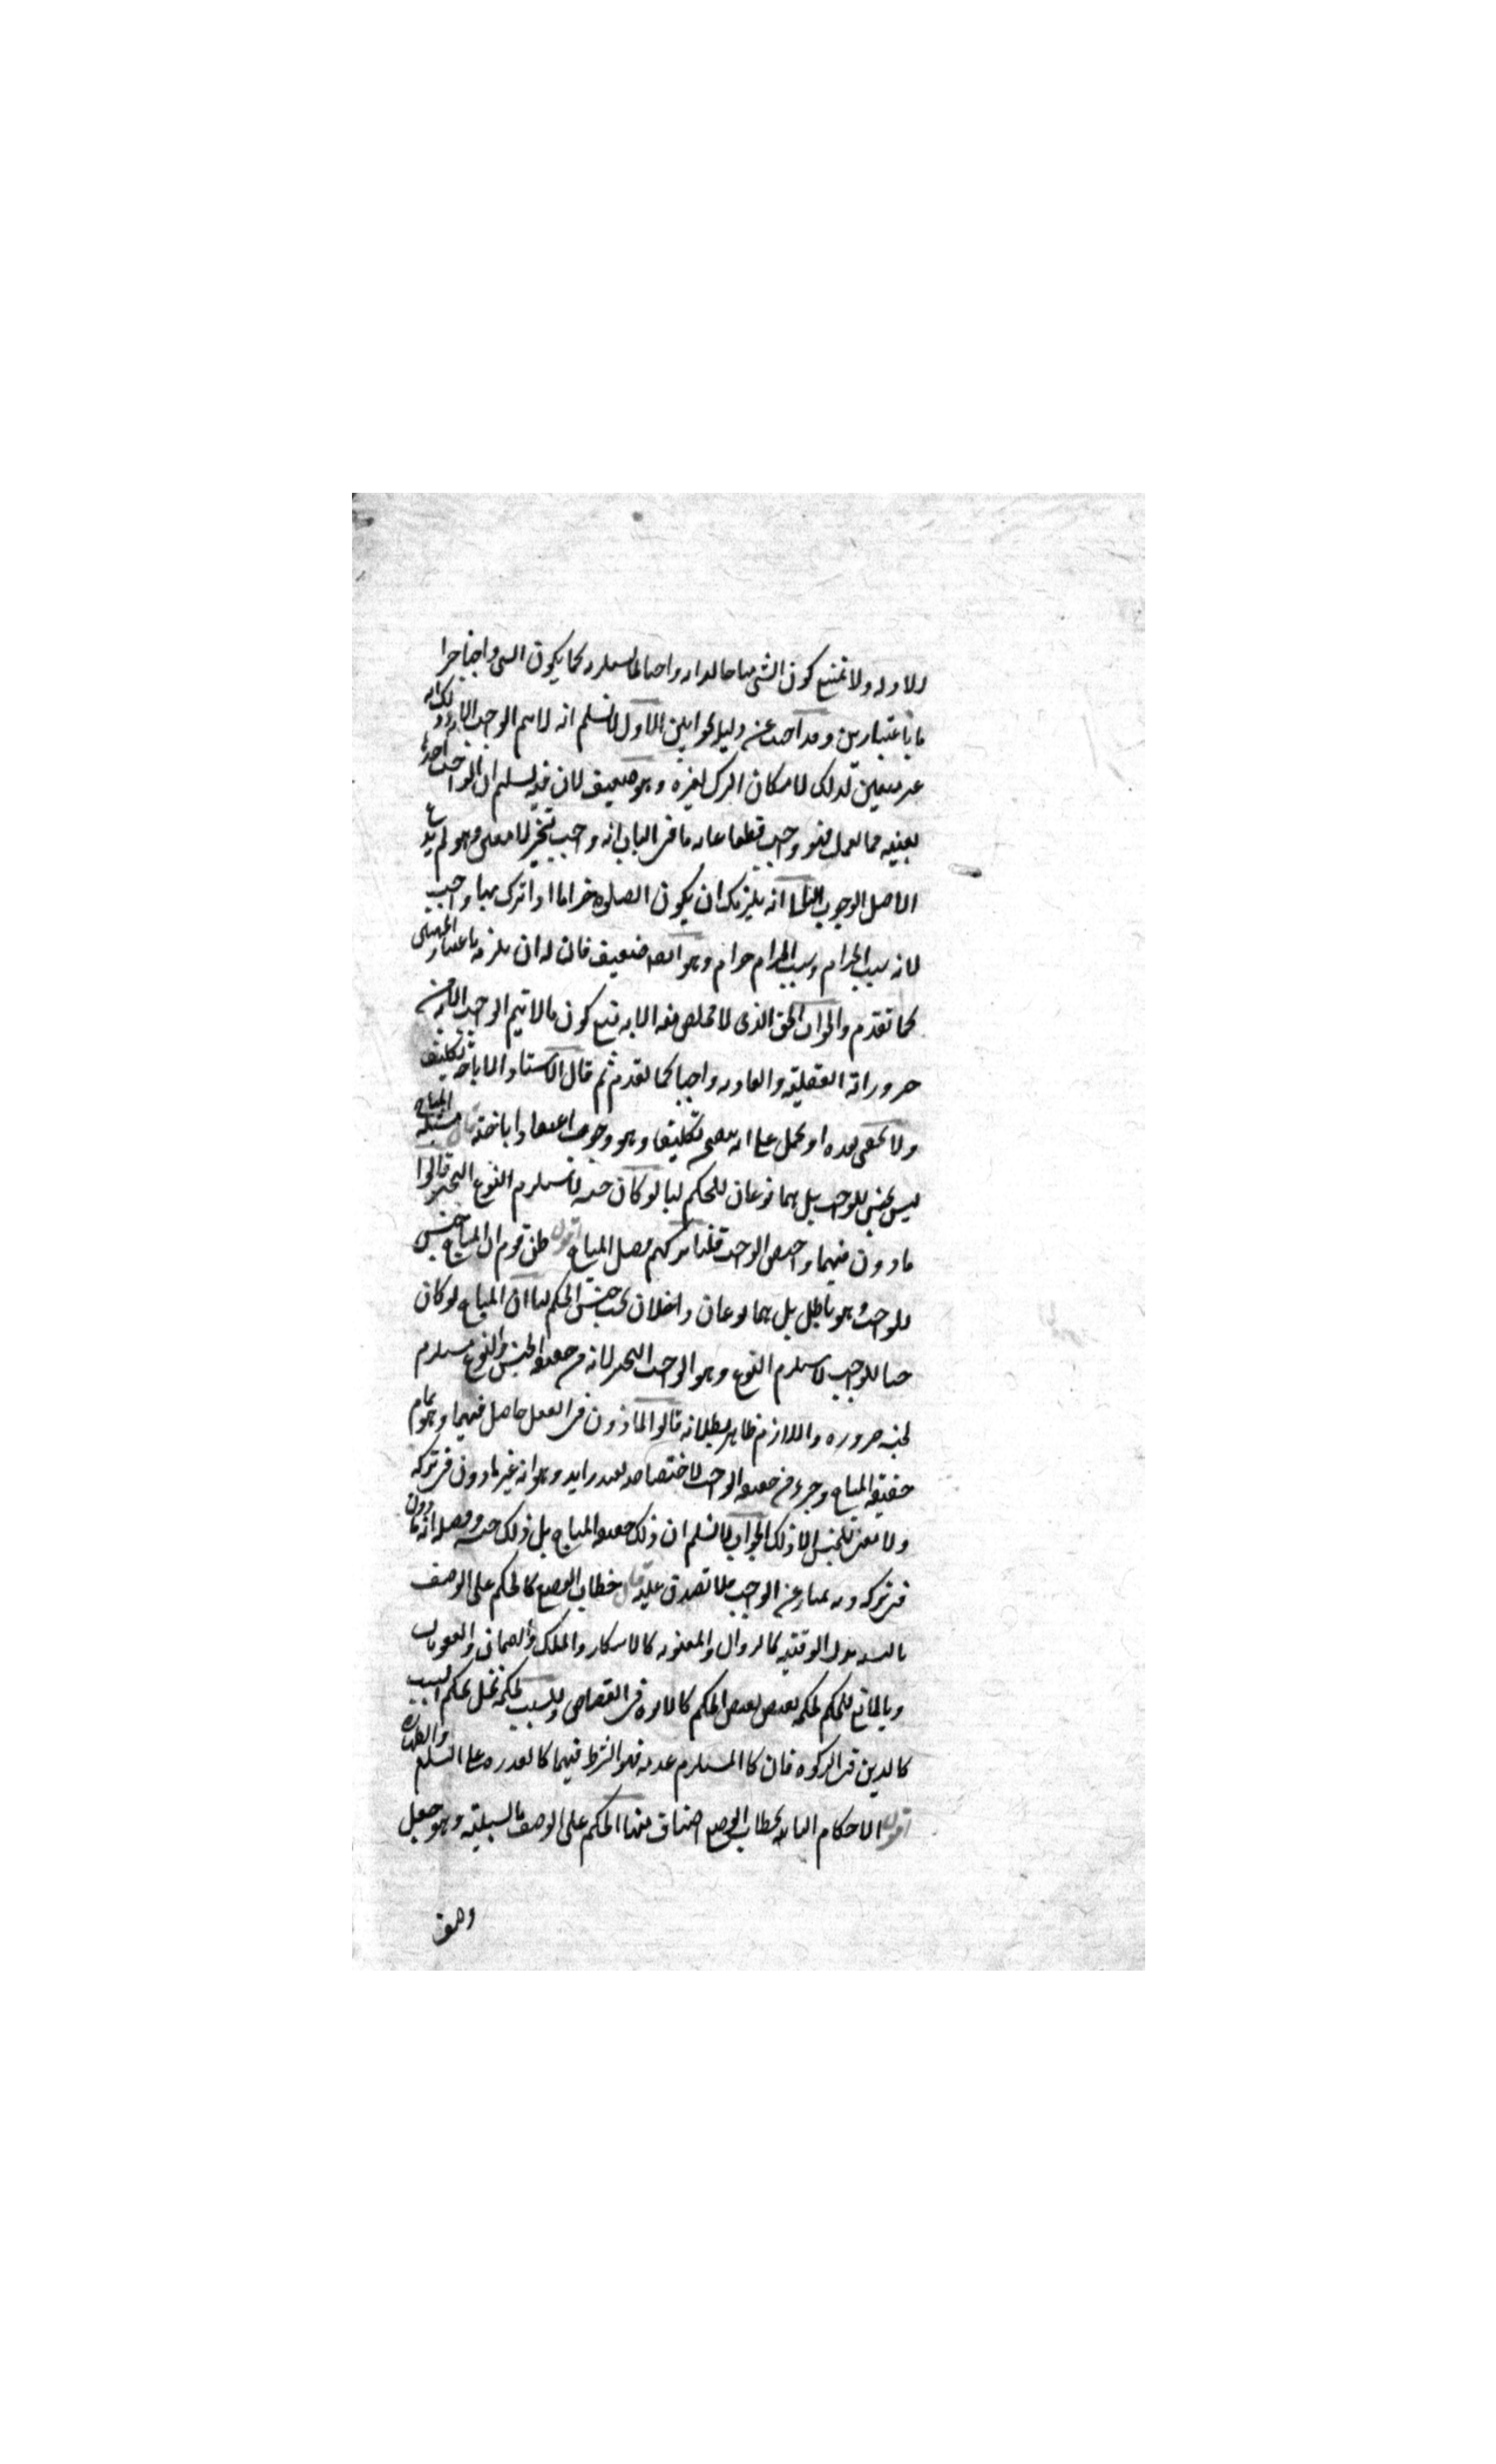 للاوله ولا تمتنع كون الشي مباحا لذاته واجبا لما يستلزمه كما يكون الشي واجبا حرا
ما باعتبارين وقد اجيب عن دليله بجوابين الاول لا نسلم انه لا يتم الواجب الا به ولكنه
غير متعين لذلك لامكان الترك لغيره وهو ضعيف لان فيه تسليم ان الواجب احدها
بعينه فما يعمل فهو واجب قطعا غايه ما في الباب انه واجب مخير لا معين وهو لم يدع
الاصل الوجوب الثاني انه يلزمك ان يكون الصلوه حراما اذا ترك بها واجب
لانه سبب الحرام وسبب الحرام حرام وهو ايضا ضعيف فان له ان يلزمه باعتبار الجهتين
كما تقدم والجواب الحق الذي لا مخلص منه الا به منع كون ما لا يتم الواجب الا به من
ضروراته العقليه والعاديه واجبا كما تقدم ثم قال الاستاد الاباحه تكليف
ولا يخفى بعده او يحمل على انه يقتضي تكليفا وهو وجوب اعتقاد اباحته قال مسئله المباح
ليس بجنس للواجب بل هما نوعان للحكم لنا لو كان جنسه لاستلزم النوع التخيير قالوا
ماذون فيهما واختص الواجب قلنا تركتم فصل المباح اقول ظن قوم ان المباح جنس
للواجب وهو باطل بل هما نوعان داخلان تحت جنس الحكم لنا ان المباح لو كان
جنسا للواجب لاستلزم النوع وهو الواجب التخيير لانه من حقيقه الجنس والنوع مستلزم
لجنسه ضروره واللازم ظاهر بطلانه قالوا الماذون في الفعل حاصل فيهما وهو تمام
حقيقه المباح وجزء من حقيقه الواجب لاختصاصه بقيد زايد وهو انه غير ماذون في تركه
ولا معنى للجنس الا ذلك الجواب لا نسلم ان ذلك حقيقه المباح بل ذلك جنسه وفصله انه ماذون
في تركه وبه يمتاز عن الواجب فلا تصدق عليه قال خطاب الوضع كالحكم على الوصف
بالسببيه الوقتيه كالزوال والمعنويه كالاسكار والملك والضمان والعقوبات
وبالمانع للحكم لحكمه تقتضي نقيض الحكم كالابوه في القصاص وللسبب لحكمه تخل بحكمه السبب
كالدين في الزكوه فان كان المستلزم عدمه فهو الشرط فيهما كالقدره على التسليم والطهاره
اقول الاحكام الثابته بخطاب الوضع اصناف منها الحكم على الوصف بالسببيه وهو جعل
وصف